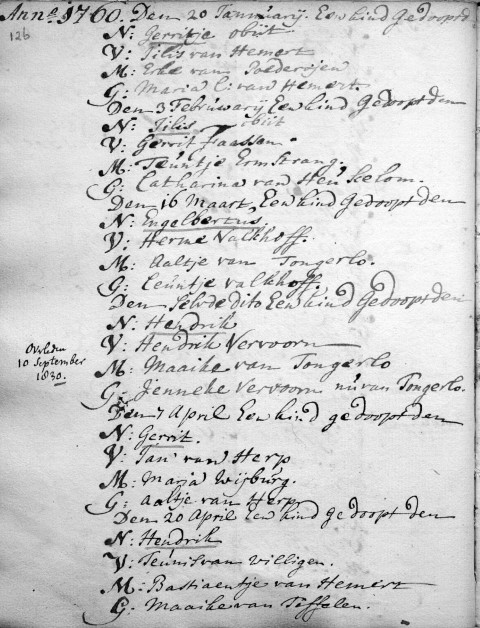 Anno. 1760. Den 20 Januarij. Een kind Gedoopt d
126
N: Gerritje obiit
V: Tilis van Hemert
M: Eke van
G: Maria C: van Hemert.
Den 3 Februwarij Een kind Gedoopt den
N: Tilis obiit
V: Gerrit Faassen.
M: Teuntje Ermstrang.
G: Catharina van Heuseelom.
Den 16 Maart, Een kind Gedoopt den
N: Engelbertus.
V: Herme Valkhoff.
M: Aaltje van Tongerlo.
G: Leuntje valkhoff.
Den Selve dito Een kind Gedoopt den
N: Hendrik
V: Hendrik Vervoorn
Overleden
10 September
1830.
M: Maaike van Tongerlo
G: Jenneke Vervoorn nu van Tongerlo.
Den 7 April Een kind gedoopt den
N: Gerrit.
V: Jan van Herp
M: Maria Wijburg.
G: Aaltje van Herp
Den 20 April Een kind gedoopt den
N: Hendrik
V: Teunis van Villigen.
M: Bastiaentje van Hemert
G: Maaike van Teffelen.